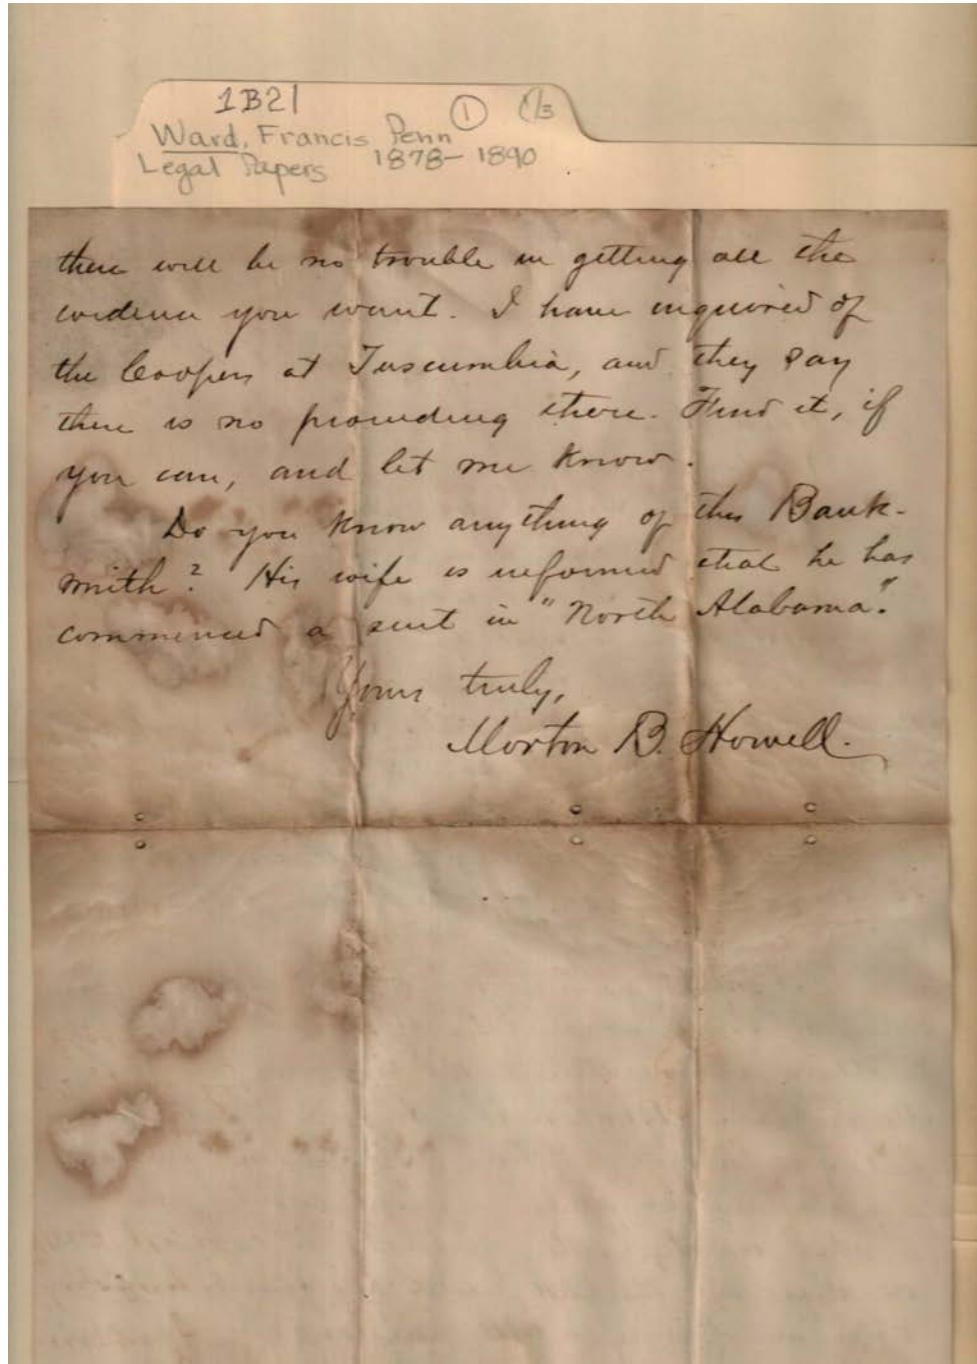 1B21 ① 1/3
Ward, Francis Penn
Legal Papers 1878-1890
there will be no trouble in getting all the
evidence you want. I have inquired of
the Coopers at Tuscumbia, and they say
there is no proceeding there. Find it, if
you can, and let me know.
Do you know anything of this Bank-
smith? His wife is informed that he has
commenced a suit in "North Alabama".
Yours truly,
Morton B. Howell.